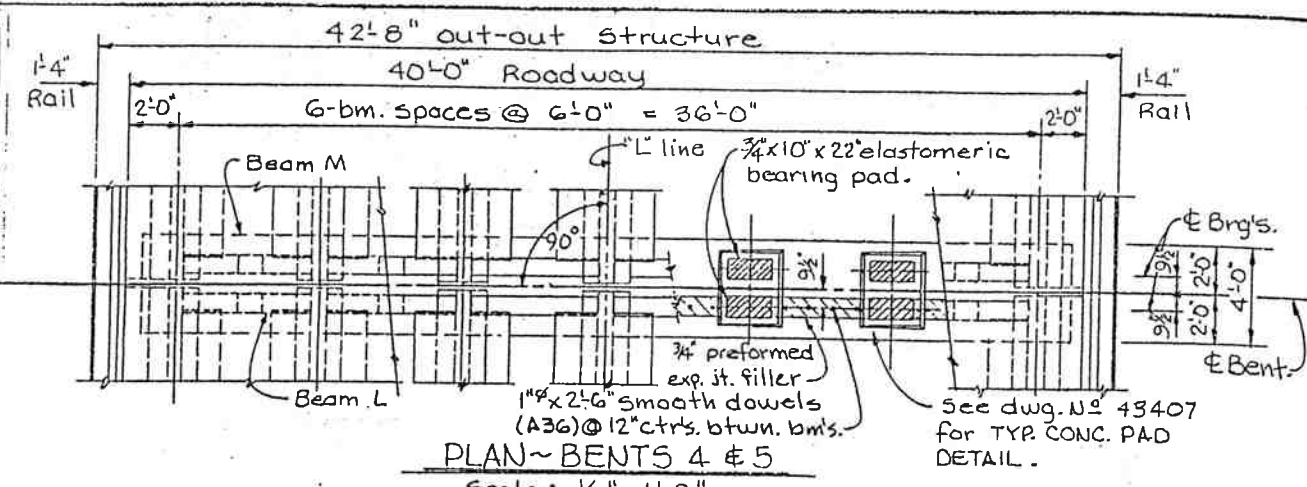 42'-8" out-out Structure
1'-4"
Rail
40'-0" Roadway
1'-4"
Rail
2'-0"
6-bm. spaces @ 6'-0" = 36'-0"
2'-0"
Beam M
"L" line
3/4"x10"x22" elastomeric
bearing pad.
90°
9½"
℄ Brg's.
9½"
2'-0"
4'-0"
9½"
2'-0"
℄ Bent.
Beam L
3/4" preformed
exp. jt. filler
1"ø x 2'-6" smooth dowels
(A36) @ 12" ctr's. btwn. bm's.
See dwg. Nº 43407
for TYP. CONC. PAD
DETAIL.
PLAN~BENTS 4 & 5